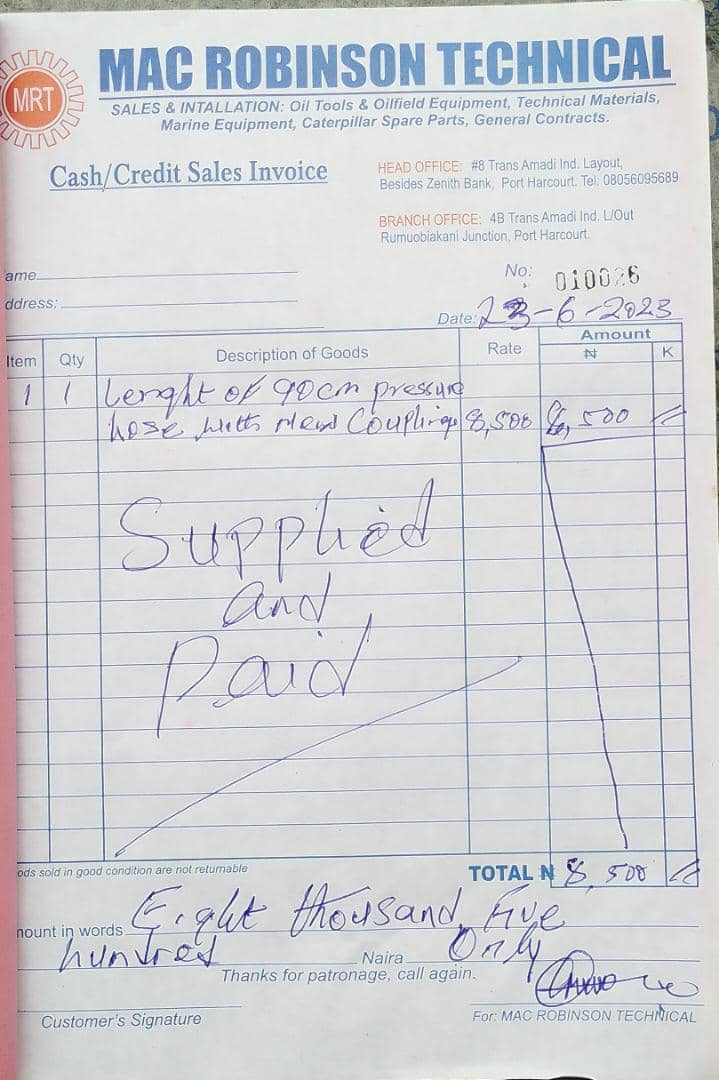 MRT
MAC ROBINSON TECHNICAL
SALES & INTALLATION: Oil Tools & Oilfield Equipment, Technical Materials,
Marine Equipment, Caterpillar Spare Parts, General Contracts.
Cash/Credit Sales Invoice
HEAD OFFICE: #8 Trans Amadi Ind. Layout,
Besides Zenith Bank, Port Harcourt. Tel: 08056095689
BRANCH OFFICE: 4B Trans Amadi Ind. L/Out
Rumuobiakani Junction, Port Harcourt.
ame
No: 010026
ddress:
Date: 23-6-2023
Item Qty Description of Goods Rate Amount
₦ K
1 1 Lenght of 90cm pressure
hose with Coupling 8,500 8,500 =
Supplied
and
Paid
ods sold in good condition are not returnable
TOTAL N 8,500 =
nount in words Eight thousand, Five
hundred Naira Only
Thanks for patronage, call again.
Customer's Signature
For: MAC ROBINSON TECHNICAL